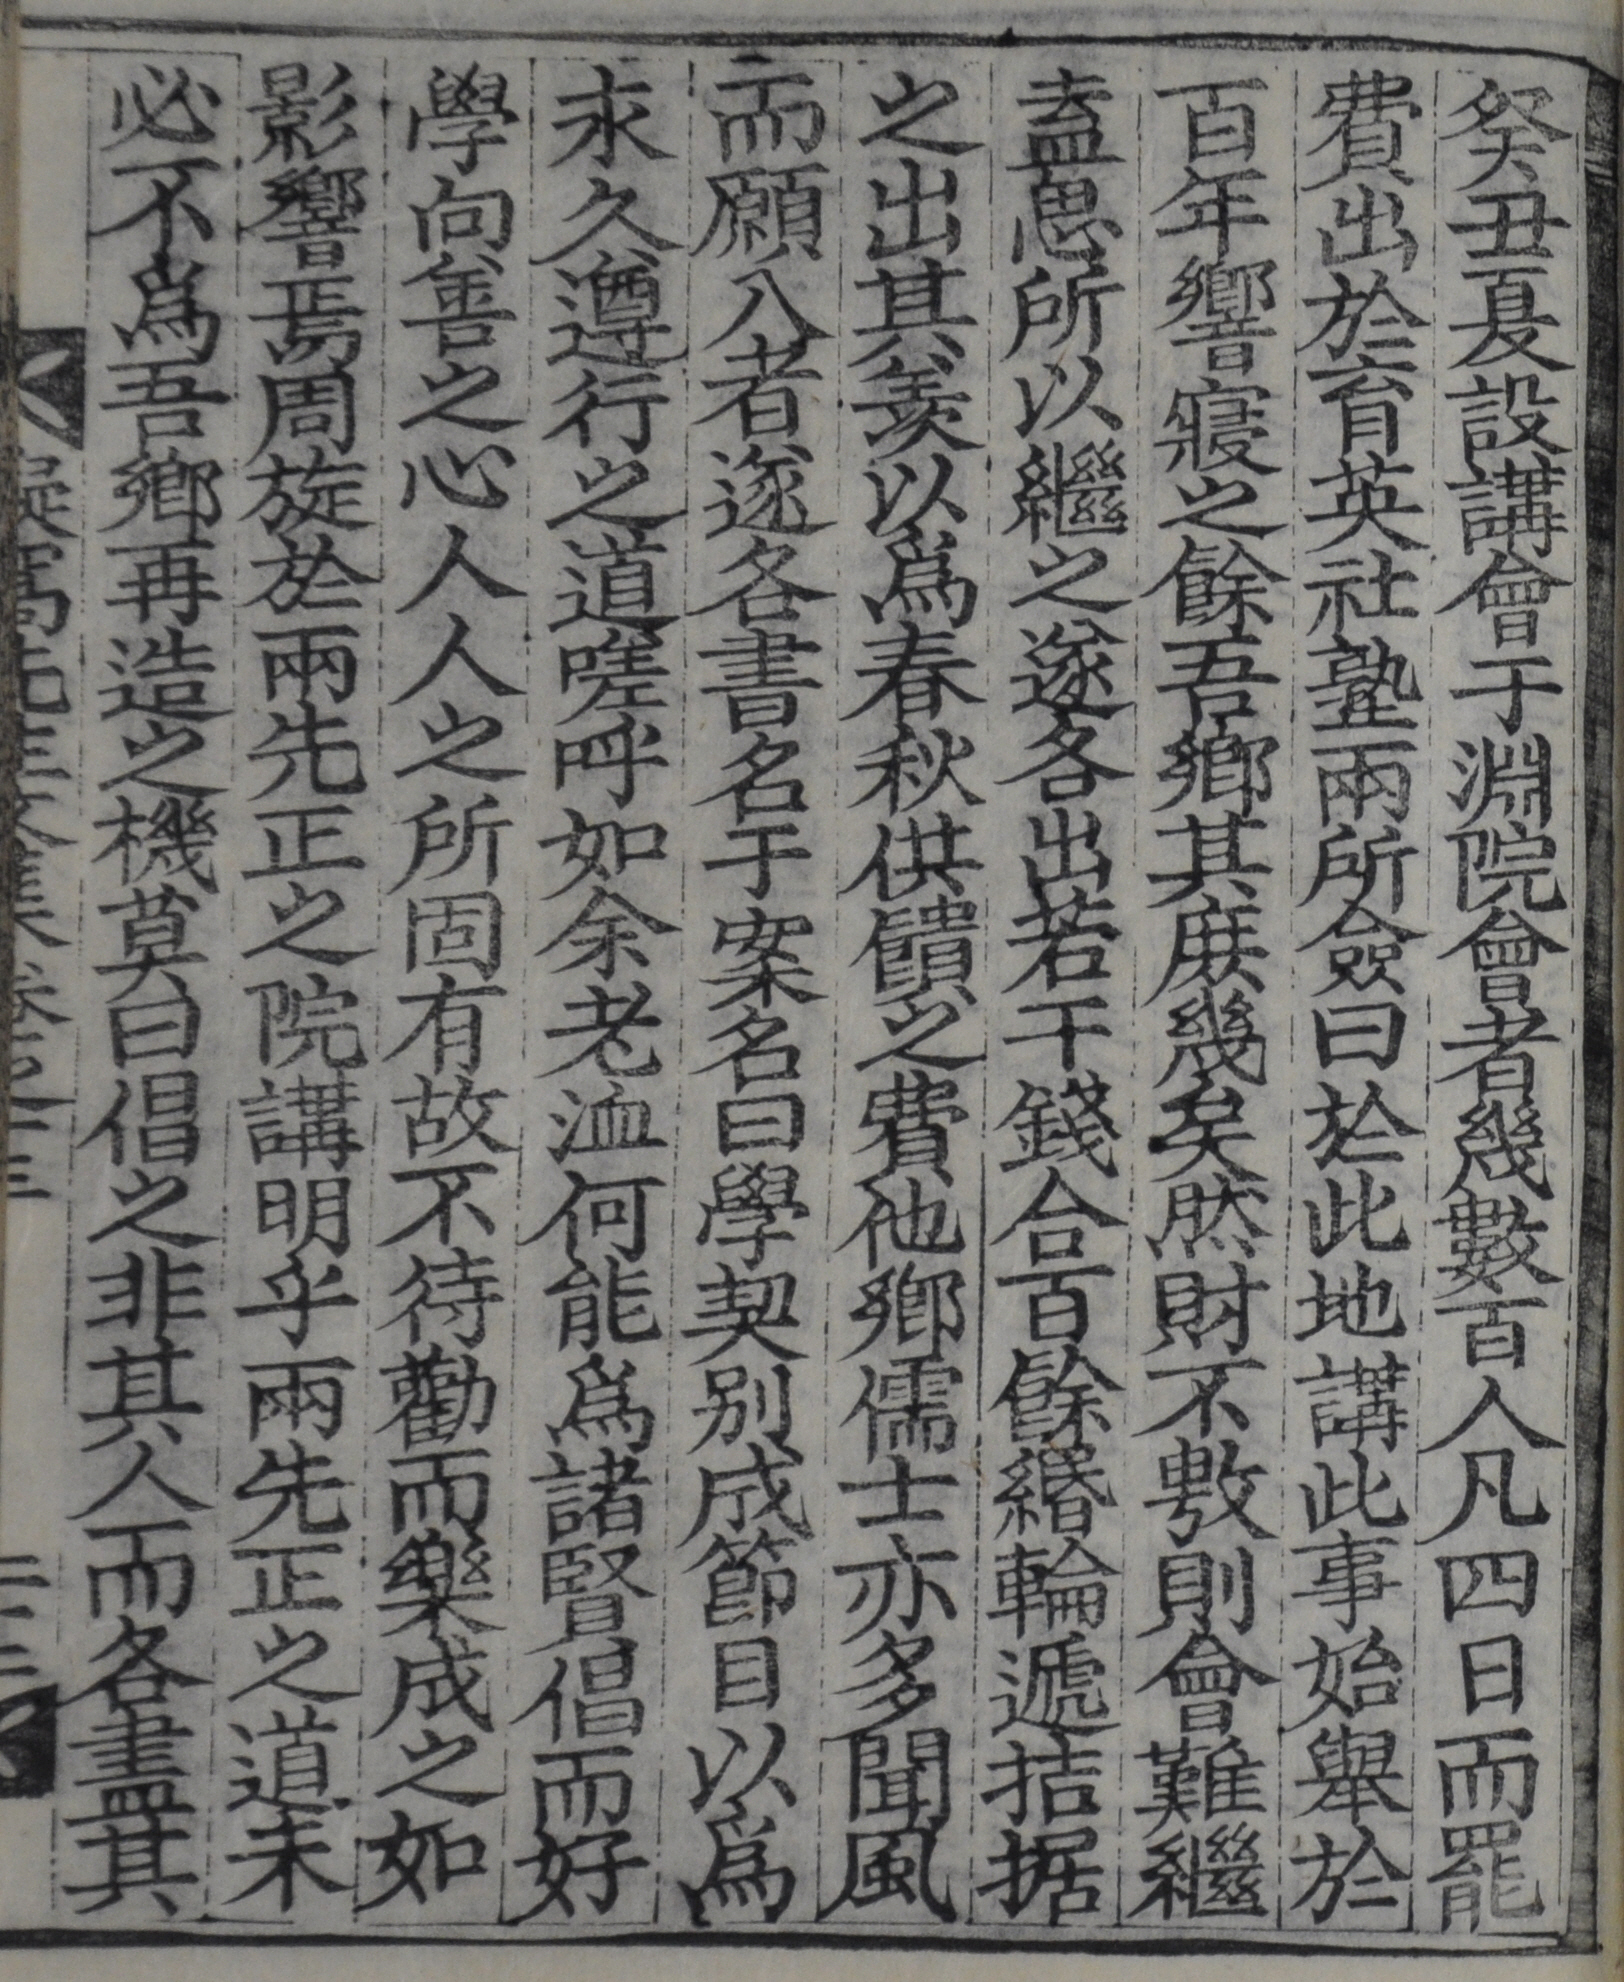 癸丑夏設講會于淵院會者幾數百人凡四日而罷
費出於育英社塾兩所僉曰於此地講此事始舉於
百年響寢之餘吾鄉其庶幾矣然財不敷則會難繼
盍思所以繼之遂各出若干錢合百餘緡輪遞拮据
之出其羨以爲春秋供饋之費他鄉儒士亦多聞風
而願入者遂各書名于案名曰學契別成節目以爲
求久遵行之道嗟呼如余老洫何能爲諸賢倡而好
學向善之心人人之所固有故不待勸而樂成之如
影響焉周旋於兩先正之院講明乎兩先正之道未
必不爲吾鄉再造之機莫曰倡之非其人而各盡其
先生文集卷之十三